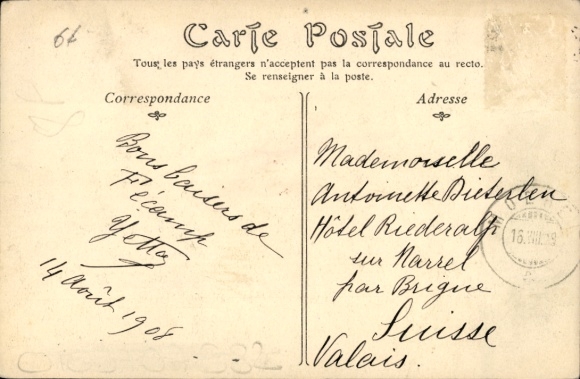 66
Carte Postale
Tous les pays étrangers n'acceptent pas la correspondance au recto.
Se renseigner à la poste.
Correspondance
Adresse
Bons baisers de
Fécamp
Yetta
14 Août 1908
Mademoiselle
Antoinette Dieterlen
Hôtel Riederalp
sur Narrel
par Brigue
Suisse
Valais.
16.VIII.